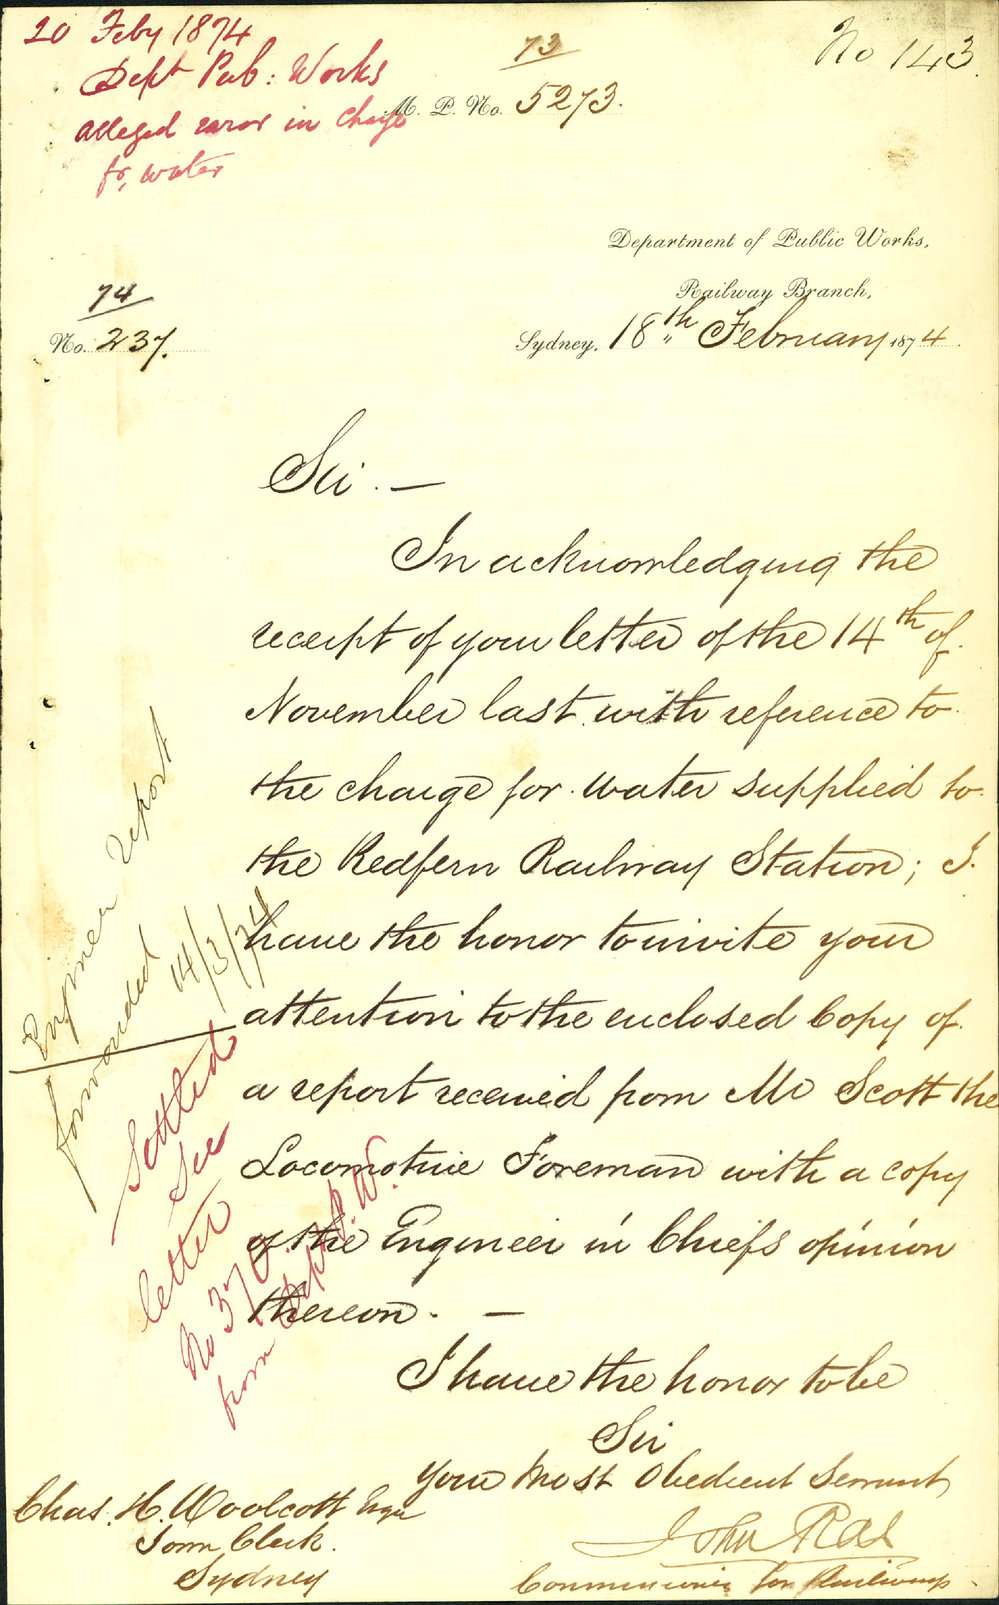 20 Feby 1874
Dept Pub: Works
alleged error in charge
for water
73
M. P. No. 5273.
No 143
Department of Public Works,
Railway Branch,
74
No. 237.
Sydney, 18th February 1874
Sir. —
In acknowledging the
receipt of your letter of the 14th of
November last with reference to
the charge for Water supplied to
the Redfern Railway Station; I
have the honor to invite your
attention to the enclosed Copy of
a report received from Mr Scott the
Locomotive Foreman with a copy
of the Engineer in Chiefs opinion
thereon. —
I have the honor to be
Sir
Your Most Obedient Servant
John Rae
Commissioner for Railways
Chas. H. Woolcott Esqre
Town Clerk.
Sydney
Engineer report
forwarded 14/3/74
Settled
See
letter
No 370
from Dept P. W.